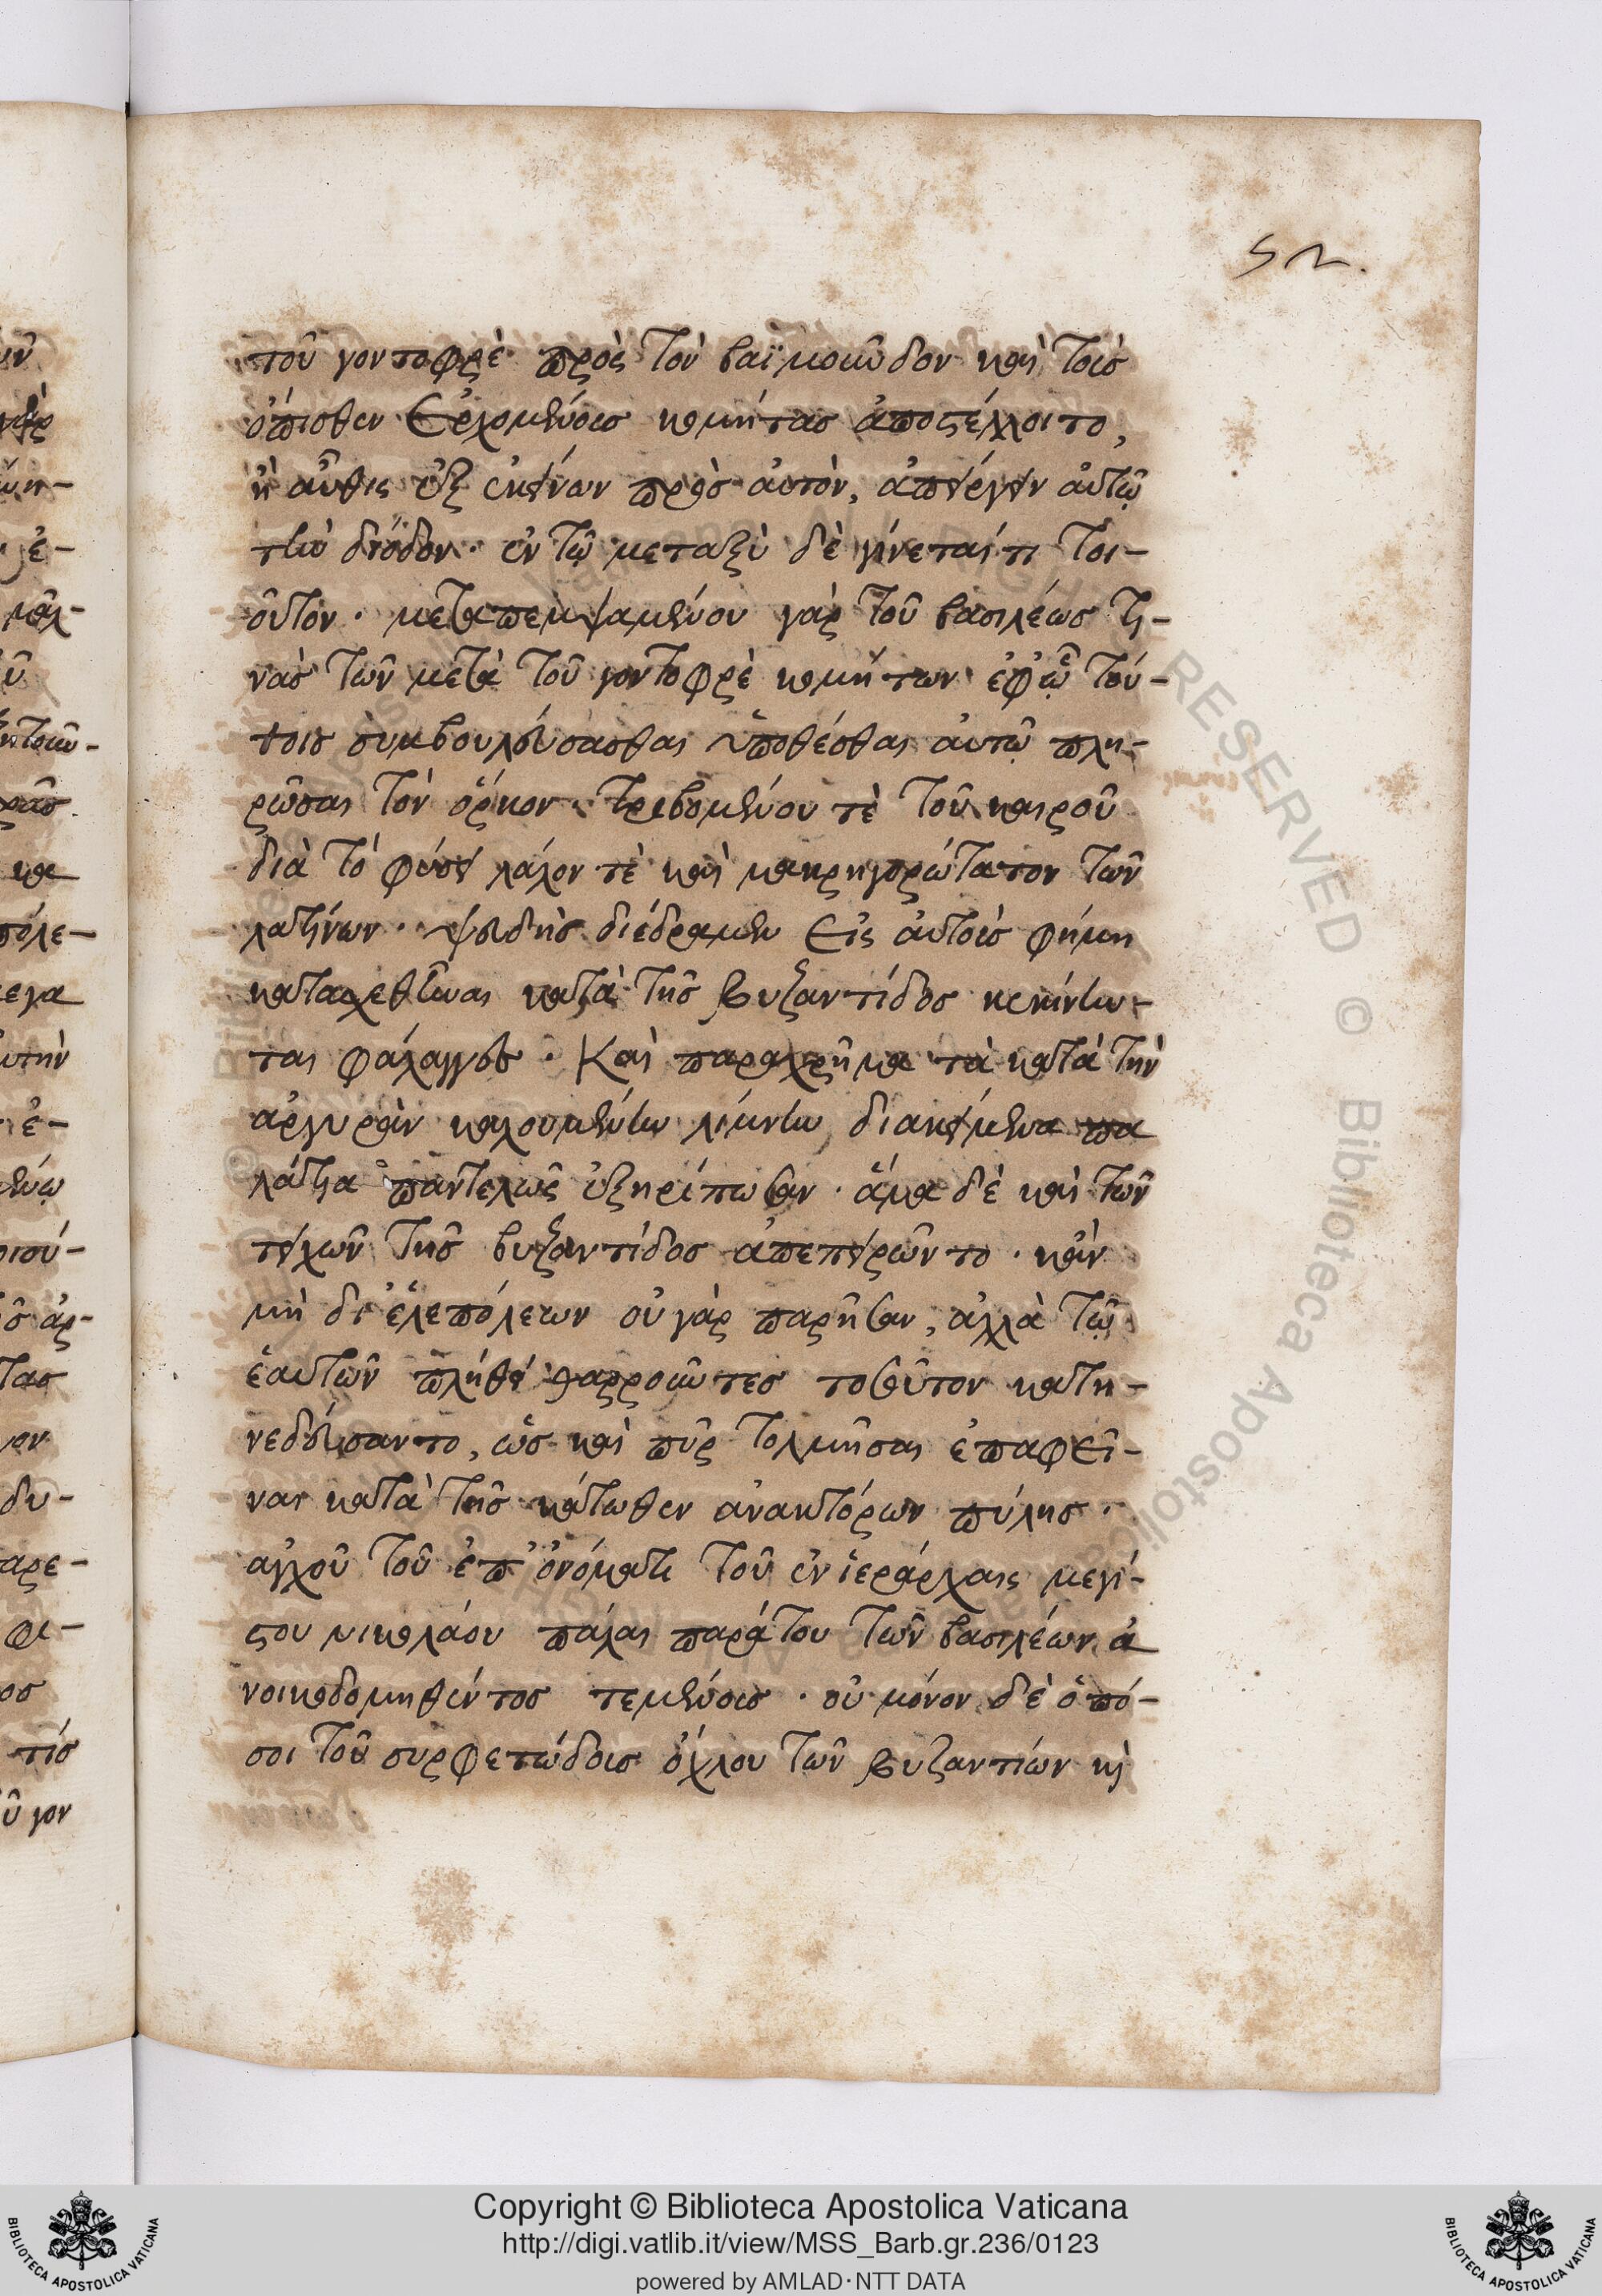 52.
τοῦ γοντοφρὲ πρὸς τὸν βαϊμοῦνδον καὶ τοὺς
ὄπισθεν ἐρχομένους κόμητας ἀποστέλλοιτο,
ἢ αὖθις ἐξ ἐκείνων πρὸς αὐτὸν, ἀπείργειν αὐτῷ
τὴν δίοδον. ἐν τῷ μεταξὺ δὲ γίνεταί τι τοι-
οῦτον. μεταπεμψαμένου γὰρ τοῦ βασιλέως τι-
νὰς τῶν μετὰ τοῦ γοντοφρὲ κομήτων ἐφ' ᾧ τού-
τοις συμβουλεύσασθαι ὑποθέσθαι αὐτῷ πλη-
ρῶσαι τὸν ὅρκον. τριβομένου τὲ τοῦ καιροῦ
διὰ τὸ φύσει λάλον τὲ καὶ μακρηγορώτατον τῶν
λατίνων. ψευδὴς διέδραμεν εἰς αὐτοὺς φήμη
κατασχεθῆναι κατὰ τῆς βυζαντίδος κεκίνην-
ται φάλαγγες. Καὶ παραχρῆμα τὰ κατὰ τὴν
ἀργυρὰν καλουμένην λίμνην διακείμενα πα
λάτια παντελῶς ἐξηρίπωσαν. ἅμα δὲ καὶ τῶν
τειχῶν τῆς βυζαντίδος ἀπεπειρῶντο. κἂν
μὴ δι' ἑλεπόλεων οὐ γὰρ παρῆσαν, ἀλλὰ τῷ
ἑαυτῶν πλήθει θαρροῦντες τοσοῦτον κατη-
νεδεύσαντο, ὡς καὶ πῦρ τολμῆσαι ἐπαφεῖ-
ναι κατὰ τῆς κάτωθεν ἀνακτόρων πύλης.
ἀγχοῦ τοῦ ἐπ' ὀνόματι τοῦ ἐν ἱεράρχαις μεγί-
στου νικολάου πάλαι παρά του τῶν βασιλέων ἀ
νοικοδομηθέντος τεμένους. οὐ μόνον δὲ ὁπό-
σοι τοῦ συρφετώδους ὄχλου τῶν βυζαντίων κὶ
Copyright © Biblioteca Apostolica Vaticana
http://digi.vatlib.it/view/MSS_Barb.gr.236/0123
powered by AMLAD·NTT DATA
BIBLIOTECA APOSTOLICA VATICANA
BIBLIOTECA APOSTOLICA VATICANA